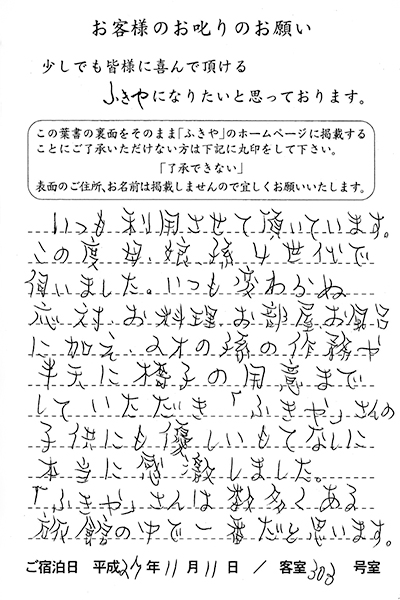 お客様のお叱りのお願い
少しでも皆様に喜んで頂ける
ふきやになりたいと思っております。
この葉書の裏面をそのまま「ふきや」のホームページに掲載する
ことにご了承いただけない方は下記に丸印をして下さい。
「了承できない」
表面のご住所、お名前は掲載しませんので宜しくお願いいたします。
いつも利用させて頂いています。
この度母、娘、孫4世代で
伺いました。いつも変わらぬ
応対、お料理、お部屋お風呂
に加え、2才の孫の作務や
半天に椅子の用意まで
していただき「ふきや」さんの
子供にも優しいもてなしに
本当に感激しました。
「ふきや」さんは数多くある
旅館の中で一番だと思います。
ご宿泊日 平成27年11月11日 / 客室303号室